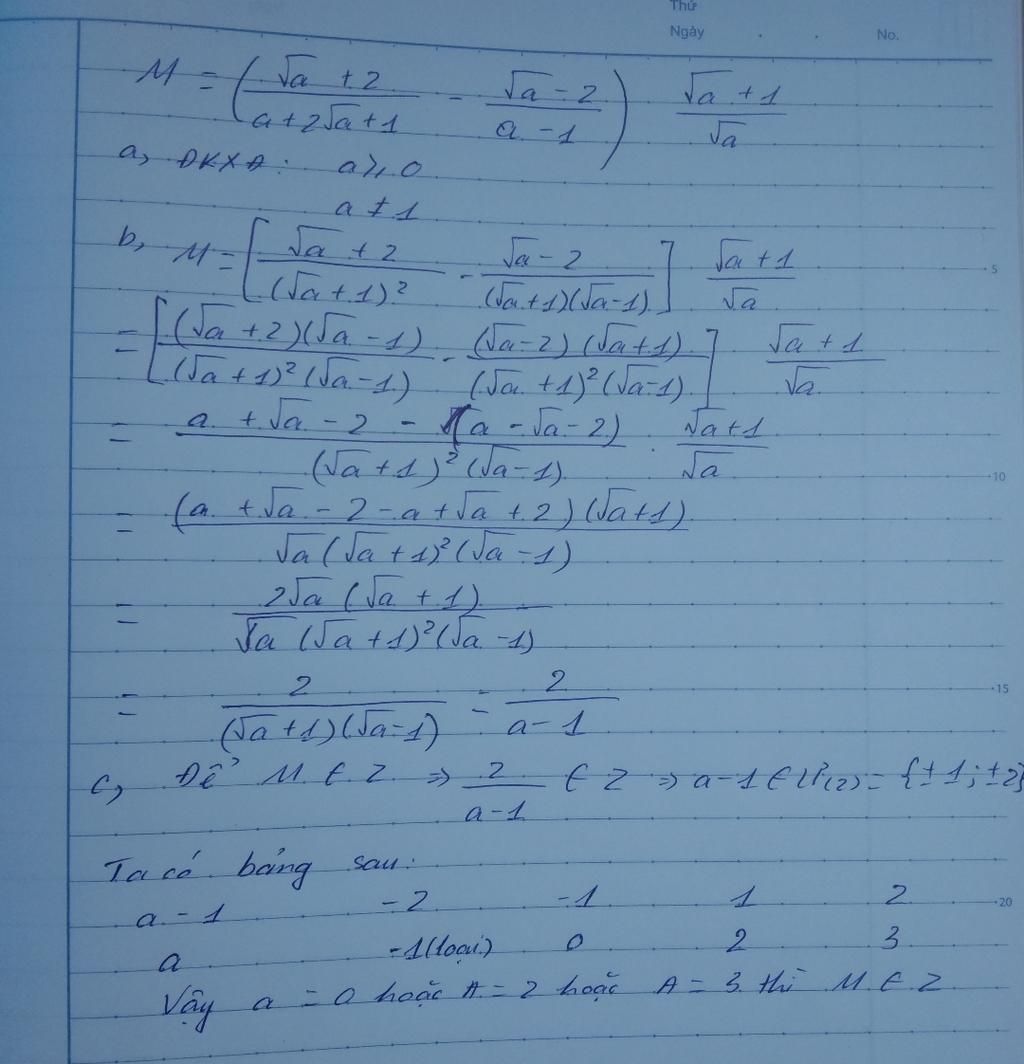 Thứ
Ngày . . No.
M = ( (√a + 2)/(a + 2√a + 1) - (√a - 2)/(a - 1) ) (√a + 1)/√a
a, ĐKXĐ: a ⩾ 0
a ≠ 1
b, M = [ (√a + 2)/(√a + 1)² - (√a - 2)/((√a + 1)(√a - 1)) ] (√a + 1)/√a
= [ ((√a + 2)(√a - 1))/((√a + 1)²(√a - 1)) - ((√a - 2)(√a + 1))/((√a + 1)²(√a - 1)) ] (√a + 1)/√a
= (a + √a - 2 - (a - √a - 2))/((√a + 1)²(√a - 1)) . (√a + 1)/√a
= ((a + √a - 2 - a + √a + 2)(√a + 1))/(√a(√a + 1)²(√a - 1))
= (2√a(√a + 1))/(√a(√a + 1)²(√a - 1))
= 2/((√a + 1)(√a - 1)) = 2/(a - 1)
c, Để M ∈ Z ⇒ 2/(a - 1) ∈ Z ⇒ a - 1 ∈ Ư(2) = {±1; ±2}
Ta có bảng sau:
a - 1 -2 -1 1 2
a -1 (loại) 0 2 3
Vậy a = 0 hoặc A = 2 hoặc A = 3 thì M ∈ Z
5
10
15
20